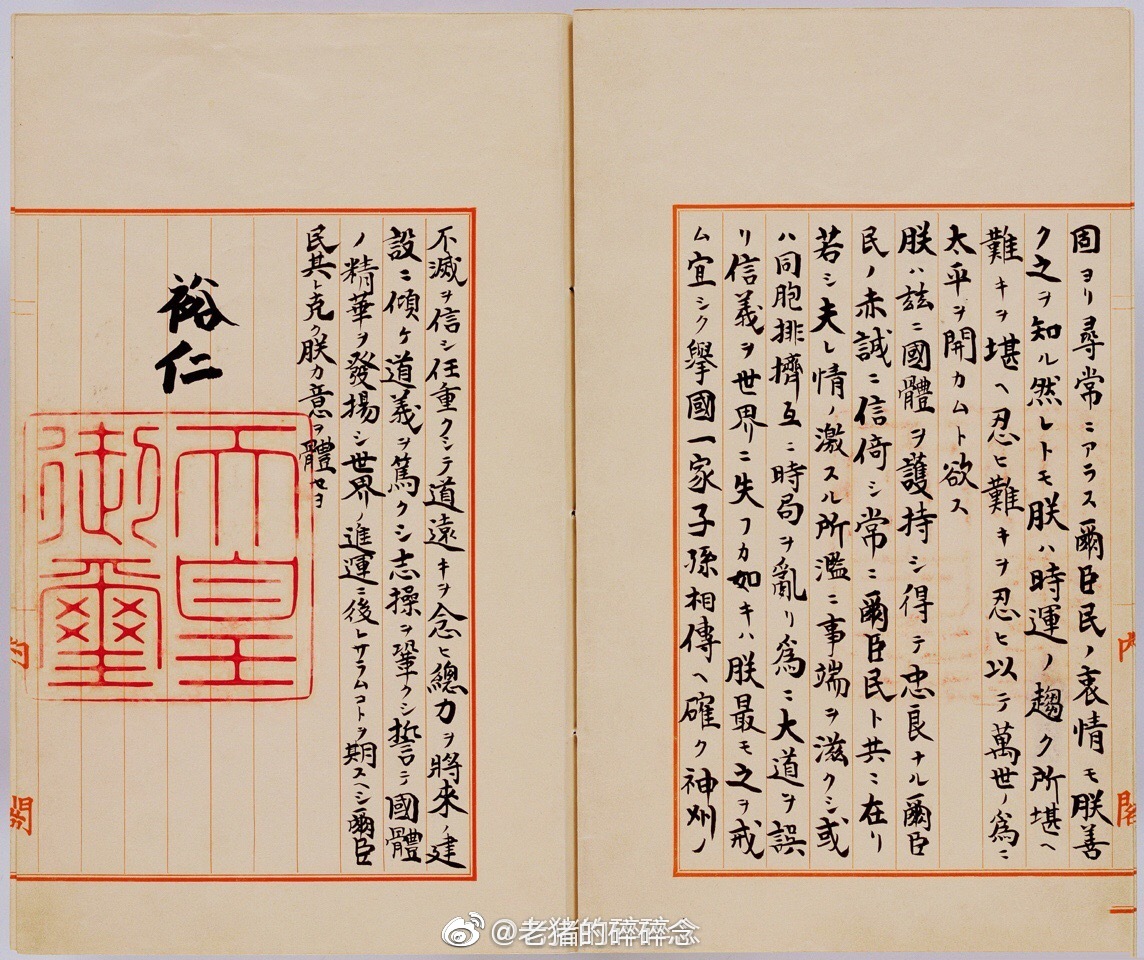 固ヨリ尋常ニアラス爾臣民ノ衷情モ朕善
ク之ヲ知ル然レトモ朕ハ時運ノ趨ク所堪ヘ
難キヲ堪ヘ忍ヒ難キヲ忍ヒ以テ萬世ノ爲ニ
太平ヲ開カムト欲ス
朕ハ玆ニ國體ヲ護持シ得テ忠良ナル爾臣
民ノ赤誠ニ信倚シ常ニ爾臣民ト共ニ在リ
若シ夫レ情ノ激スル所濫ニ事端ヲ滋クシ或
ハ同胞排擠互ニ時局ヲ亂リ爲ニ大道ヲ誤
リ信義ヲ世界ニ失フカ如キハ朕最モ之ヲ戒
ム宜シク擧國一家子孫相傳ヘ確ク神州ノ
不滅ヲ信シ任重クシテ道遠キヲ念ヒ總力ヲ將來ノ建
設ニ傾ケ道義ヲ篤クシ志操ヲ鞏クシ誓テ國體
ノ精華ヲ發揚シ世界ノ進運ニ後レサラムコトヲ期スヘシ爾臣
民其レ克ク朕カ意ヲ體セヨ
裕仁
天皇
御璽
内
閣
内
閣
@老猪的碎碎念